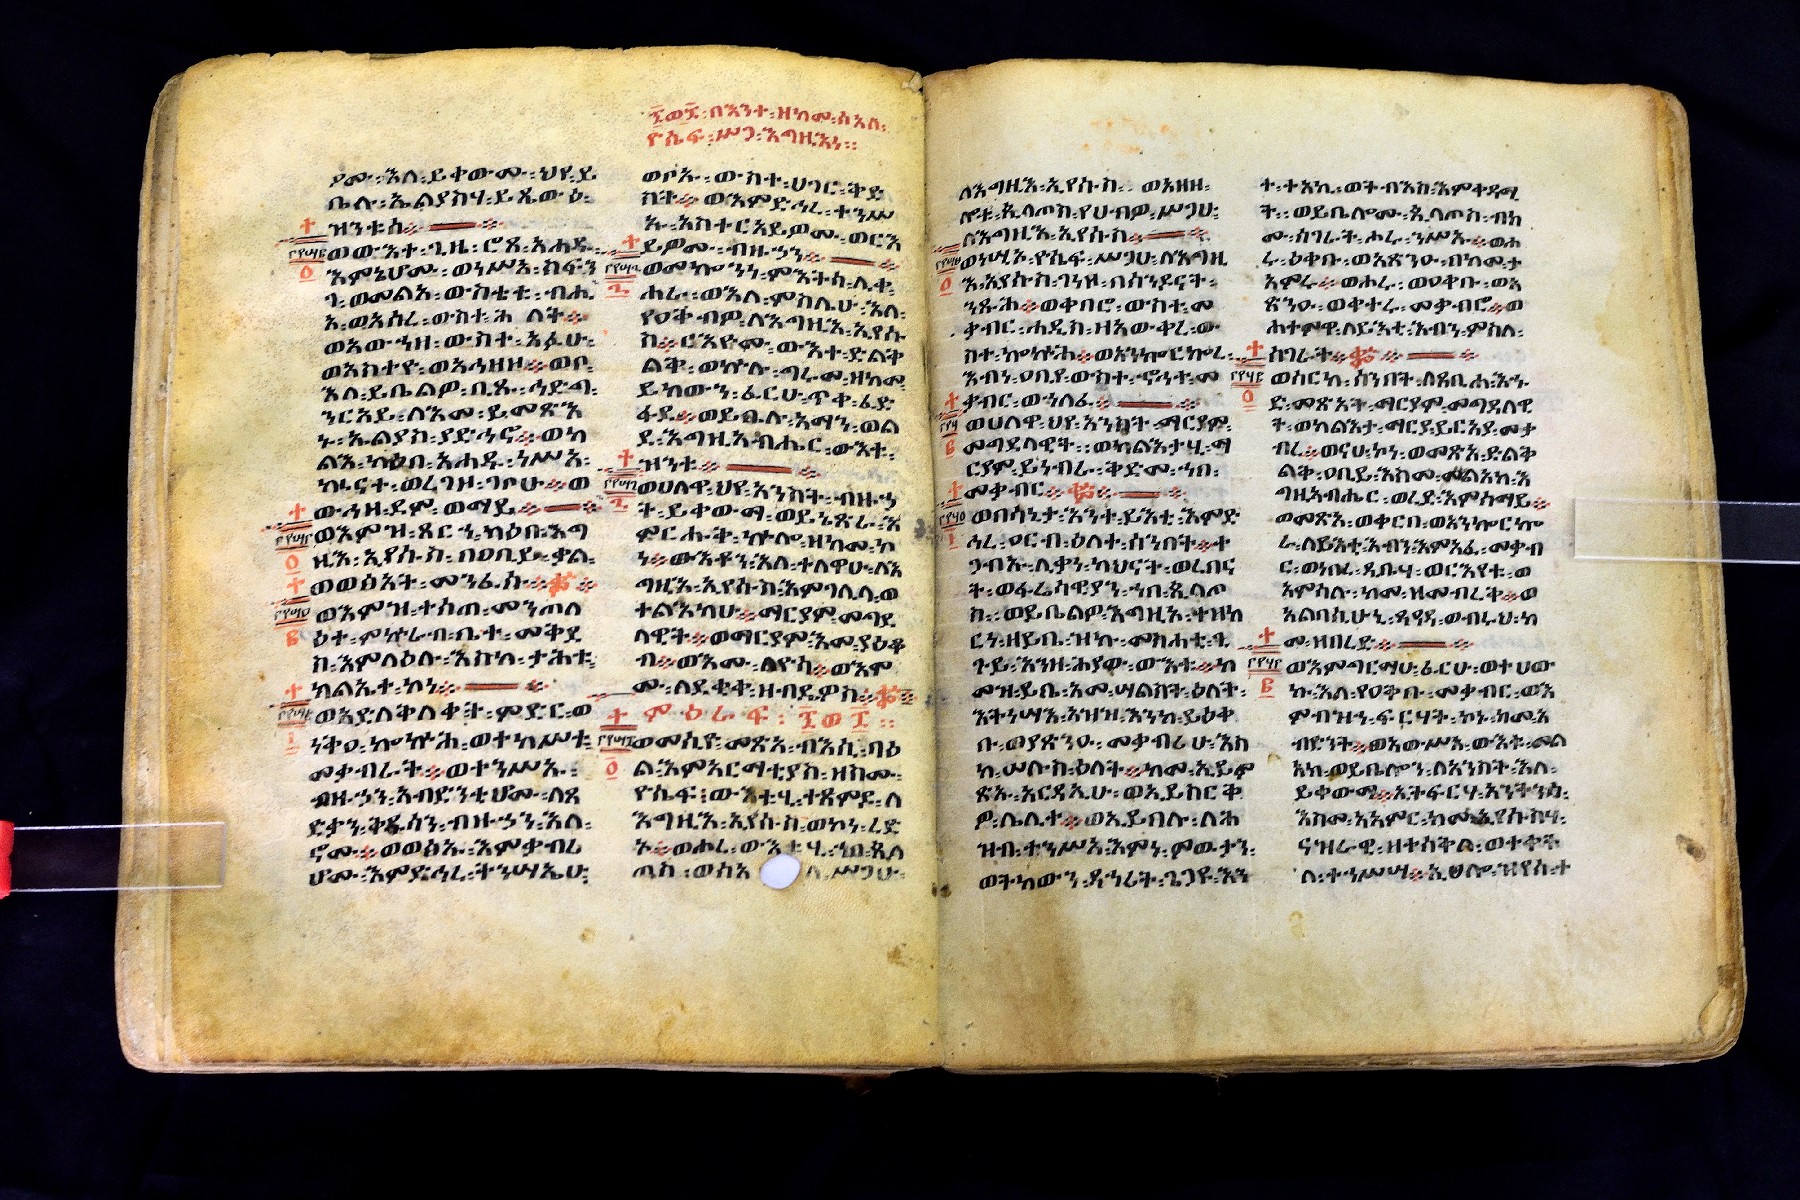 ፷ወ፯፡በእንተ፡ዘከመ፡ሰአለ፡
ዮሴፍ፡ሥጋ፡እግዚእነ።
ዎሙ፡እለ፡ይቀውሙ፡ህየ፡ይ
ቤሉ፡ኤልያስሃ፡ይጼውዕ፡
ዝንቱሰ።
ወውእተ፡ጊዜ፡ሮጸ፡አሐዱ፡
እምኔሆሙ፡ወነሥአ፡ሰፍን
ገ፡ወመልአ፡ውስቴቱ፡ብሒ
አ፡ወአሰረ፡ውስተ፡ሕለት።
ወአውኀዘ፡ውስተ፡አፉሁ፡
ወአስተዮ፡ወእኅዘዘ።ወቦ፡
እለ፡ይቤልዎ፡ቢጹ፡ኀድግ፡
ንርአይ፡ለእመ፡ይመጽእ
ኑ፡ኤልያስ፡ያድኅኖ።ወካ
ልእ፡ካዕበ፡አሐዱ፡ነሥአ፡
ኵናተ፡ወረገዞ፡ገቦሁ።ወ
ውኅዘ፡ደም፡ወማይ።
ወእምዝ፡ጸርኀ፡ካዕበ፡እግ
ዚእ፡ኢየሱስ፡በዐቢይ፡ቃል፡
ወወፅአት፡መንፈሱ።
ወእምዝ፡ተሰጠ፡መንጦላ
ዕተ፡ምኵራብ፡ቤተ፡መቅደ
ስ፡እምላዕሉ፡እስከ፡ታሕቱ፡
ክልኤተ፡ኮነ።
ወአድለቅለቀት፡ምድር፡ወ
ነትዐ፡ኰኵሕ፡ወተከሥተ፡
መቃብራት።ወተንሥኡ፡
ብዙኃን፡አብድንቲሆሙ፡ለጻ
ድቃን፡ቅዱሳን፡ብዙኃን፡እለ፡
ኖሙ።ወወፅኡ፡እምቃብሪ
ሆሙ፡እምድኅረ፡ትንሣኤሁ፡
ወቦኡ፡ውስተ፡ሀገር፡ቅድ
ስት።ወእምድኅረ፡ተንሥ
ኡ፡አስተርአይዎሙ፡ወርእ
ይዎሙ፡ብዙኃን።
ወመኰንነ፡ምእትሰ፡ሊቀ፡
ሐራ፡ወእለ፡ምስሌሁ፡እለ፡
የዐቅብዎ፡ለእግዚእ፡ኢየሱ
ስ።ርእዮሙ፡ውእተ፡ድልቅ
ልቅ፡ወኵሉ፡ግራመ፡ዘከመ፡
ይከውን፡ፈርሁ፡ጥቀ፡ፈድ
ፋደ።ወይቤሉ፡አማን፡ወል
ደ፡እግዚአብሔር፡ውእቱ፡
ዝንቱ።
ወሀለዋ፡ህየ፡አንስት፡ብዙኃ
ት፡ይቀውማ፡ወይኔጽራ፡እ
ምርሑቅ፡ኵሎ፡ዘከመ፡ኮ
ነ።ውእቶን፡እለ፡ተለዋሁ፡ለእ
ግዚእ፡ኢየሱስ፡እምገሊላ፡ወ
ተልእካሁ።ማርያም፡መግደ
ላዊት።ወማርያም፡እመ፡ያዕቆ
ብ።ወእሙ፡ለዮሳ።ወእም
ሙ፡ለደቂቀ፡ዘብዴዎስ።
ምዕራፍ፡፷ወ፯።
ወመስዮ፡መጽአ፡ብእሲ፡ባዕ
ል፡እምአርማቲያስ፡ዘስሙ፡
ዮሴፍ፤ውእቱሂ፡ተጸምዶ፡ለ
እግዚእ፡ኢየሱስ፡ወኮነ፡ረድ
አ።ወሖረ፡ውእቱሂ፡ኀበ፡ጲላ
ጦስ፡ወሰአለ፡ሥጋሁ፡
ለእግዚእ፡ኢየሱስ፡ወአዘዘ፡
ሎቱ፡ጲላጦስ፡የሀብዎ፡ሥጋሁ፡
ለእግዚእ፡ኢየሱስ።
ወነሢኦ፡ዮሴፍ፡ሥጋሁ፡ለእግዚ
እ፡ኢየሱስ፡ገነዘ፡በሰንዱናት፡
ንጹሕ።ወቀበሮ፡ውስተ፡መ
ቃብር፡ሐዲስ፡ዘአውቀረ፡ው
ስተ፡ኰኵሕ።ወአንኰርኰረ፡
እብነ፡ዐቢየ፡ውስተ፡ኆኅተ፡መ
ቃብር፡ወኀለፈ።
ወሀለዋ፡ህየ፡አንስት፡ማርያም፡
መግደላዊት፡ወካልእታሂ፡ማ
ርያም፡ይነብራ፡ቅድመ፡ኀበ፡
መቃብር።
ወበሳኒታ፡እንተ፡ይእቲ፡እምድ
ኅረ፡ዐርብ፡ዕለተ፡ሰንበት።ተ
ጋብኡ፡ሊቃነ፡ካህናት፡ወረበና
ት፡ወፈሪሳዊያን፡ኀበ፡ጲላጦ
ስ፡ወይቤልዎ፡እግዚእ፡ተዘከ
ርነ፡ዘይቤ፡ዝኩ፡መስሐቲ፡ጊ
ጉይ፡እንዘ፡ሕያው፡ውእቱ።ከ
መዝ፡ይቤ፡እመ፡ሣልስት፡ዕለት፡
እትነሣእ፡አዝዝ፡እንከ፡ይዕቀ
ቡ፡ወያጽንዑ፡መቃብሪሁ፡እስ
ከ፡ሠሉስ፡ዕለት።ከመ፡ኢይም
ጽኡ፡አርዳኢሁ፡ወኢይስርቅ
ዎ፡ሌሊተ።ወኢይበሉ፡ለሕ
ዝብ፡ተንሥአ፡እምነ፡ምውታን፡
ወትከውን፡ዳኅሪት፡ጌጋዮ፡እን
ተ፡ተአኪ፡ወትብእስ፡እምቀዳሚ
ት፡ወይቤሎሙ፡ጲላጦስ፡ብክ
ሙ፡ሰገራት፡ሑሩ፡ንሥኡ።ወሑ
ሩ፡ዕቀቡ፡ወአጽንዑ፡በከመ፡ታ
አምሩ።ወሖሩ፡ወዐቀቡ፡ወአ
ጽንዑ፡ወቀተሩ፡መቃብሮ።ወ
ሐተምዋ፡ለይእቲ፡እብን፡ምስለ፡
ሰገራት።
ወሰርከ፡ሰንበት፡ለጸቢሐ፡እሑ
ድ፡መጽአት፡ማርያም፡መግደላዊ
ት፡ወካልእታ፡ማርያ፡ይርአያ፡መቃ
ብረ።ወናሁ፡ኮነ፡ወመጽአ፡ድልቅ
ልቅ፡ዐቢይ፡እስመ፡መልአከ፡እ
ግዚአብሔር፡ወረደ፡እምሰማይ።
ወመጽአ፡ወቀርበ፡ወአንኰርኰ
ራ፡ለይእቲ፡እብን፡እምአፈ፡መቃብ
ር፡ወነበረ፡ዲቤሃ፡ወርእየቱ፡ወ
አምሳሉ፡ከመ፡ዝመብረቅ።ወ
አልባሲሁኒ፡ጸዓዳ፡ወብሩህ፡ከ
መ፡ዘበረድ።
ወእምግርማሁ፡ፈርሁ፡ወተሀው
ኩ፡እለ፡የዐቅቡ፡መቃብር፡ወእ
ምብዝኀ፡ፍርሃት፡ኮኑ፡ከመ፡አ
ብድንት።ወአውሥአ፡ውእቱ፡መል
አክ፡ወይቤሎን፡ለአንስት፡እለ፡
ይቀውማ።ኢትፍርሃ፡አንትንሰ፡
እስመ፡አአምር፡ከመ፡ኢየሱስሃ፡
ናዝራዊ፡ዘተሰቅለ፡ወተቀት
ለ፡ተንሥአ።ኢሀሎ፡ዝየሰ፡ተ